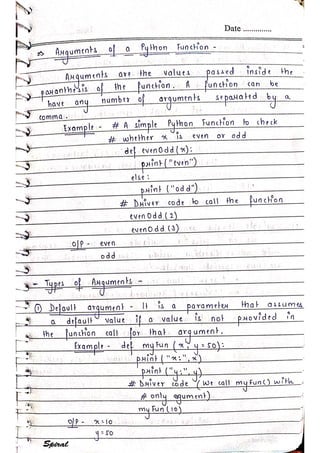 Date ..............
Arguments of a Python Function -
Arguments are the values passed inside the
paranthesis of the function. A function can be
have any number of arguments separated by a
comma.
Example - # A simple Python function to check
# whether x is even or odd
def evenOdd(x):
print("even")
else:
print("odd")
# Driver code to call the function
evenOdd(2)
evenOdd(3)
O/P - even
odd
- Types of Arguments -
① Default argument - It is a parameter that assumes
a default value if a value is not provided in
the function call for that argument.
Example - def myFun(x, y=50):
print("x:", x)
print("y:", y)
# Driver code (We call myFun() with
# only argument)
myFun(10)
O/P - x=10
y=50
Spiral